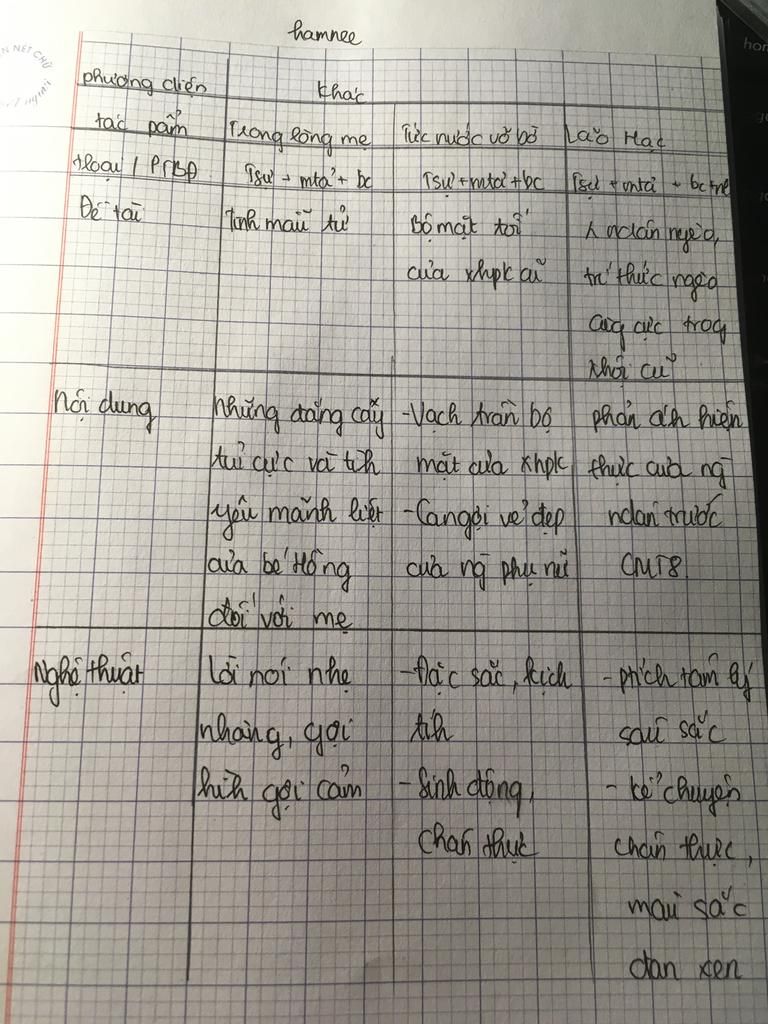 hamnee
N NÉT CHỮ
phương diện
Khác
tác pẩm Trong lòng mẹ Tức nước vỡ bờ Lão Hạc
thloại / PTBĐ Tsự + mtả + bc Tsự+mtả+bc Tsự + mtả + bc
Đề tài Tình mẫu tử Bộ mặt tối ndân ngèo,
của xhpk cũ trí thức ngèo
cùg cực trog
xhội cũ
Nội dung những đắng cấy -Vạch trần bộ phản ánh hiện
tủi cực và tìh mặt của xhpk thực của ng
yêu mãnh liệt -Ca ngợi vẻ đẹp ndân trước
của bé Hồng của ng phụ nữ CMT8
đối với mẹ
Nghệ thuật Lời nói nhẹ -Đặc sắc, kịch - ptích tâm lý
nhàng, gợi tíh sâu sắc
hìh gợi cảm - Sinh động, - kể chuyện
chân thực chân thực,
màu sắc
đan xen